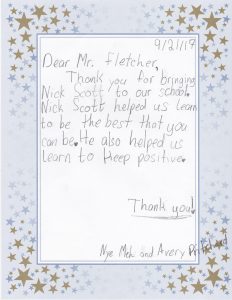 9/21/17
Dear Mr. Fletcher,
Thank you for bringing
Nick Scott to our school.
Nick Scott helped us learn
to be the best that you
can be. He also helped us
learn to keep positive.
Thank you!
and Avery